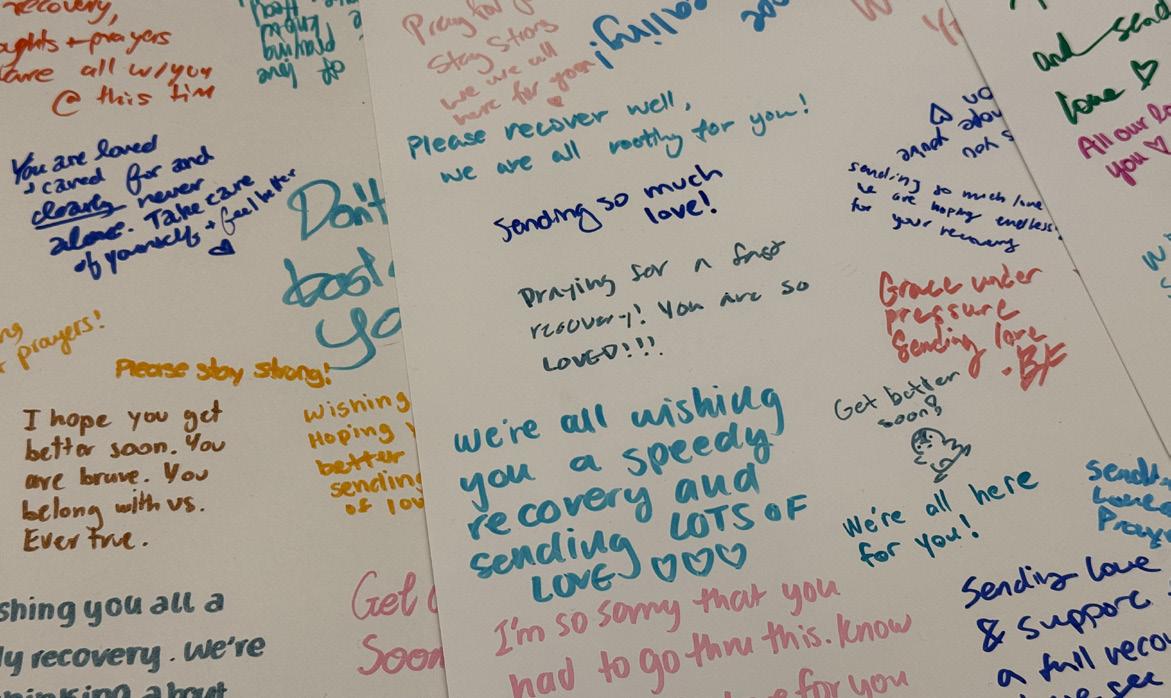 recovery,
+ prayers
are all w/you
@ this tim
know
praying
of love
You are loved
+ cared for and
clearly never
alone. Take care
of yourself + feel better
Don't
yo
prayers!
Please stay strong!
I hope you get
better soon. You
are brave. You
belong with us.
Ever true.
Wishing
Hoping
better
sending
of lov
shing you all a
y recovery. We're
about
Get
Soon
Pray for
Stay Strong
we all
here for you
Please recover well,
we are all rooting for you!
Sending so much
love!
Praying for a fast
recovery! You are so
LOVED!!!
we're all wishing
you a speedy
recovery and
sending LOTS OF
LOVE ♡♡♡
I'm so sorry that you
had to go thru this. Know
for you
sending so much love
we are hoping endless
for your recovery
Grace under
pressure
Sending love
- BF
Get better
soon!
We're all here
for you!
and send
love ♡
All our lo
you ♡
Send
Love
Pray
Sending love
& support
a full reco
see